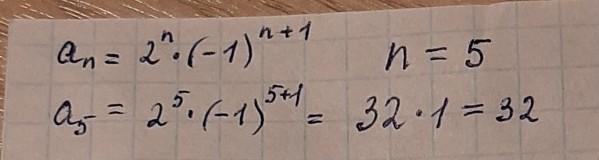 aₙ = 2ⁿ · (−1)ⁿ⁺¹ n = 5
a₅ = 2⁵ · (−1)⁵⁺¹ = 32 · 1 = 32